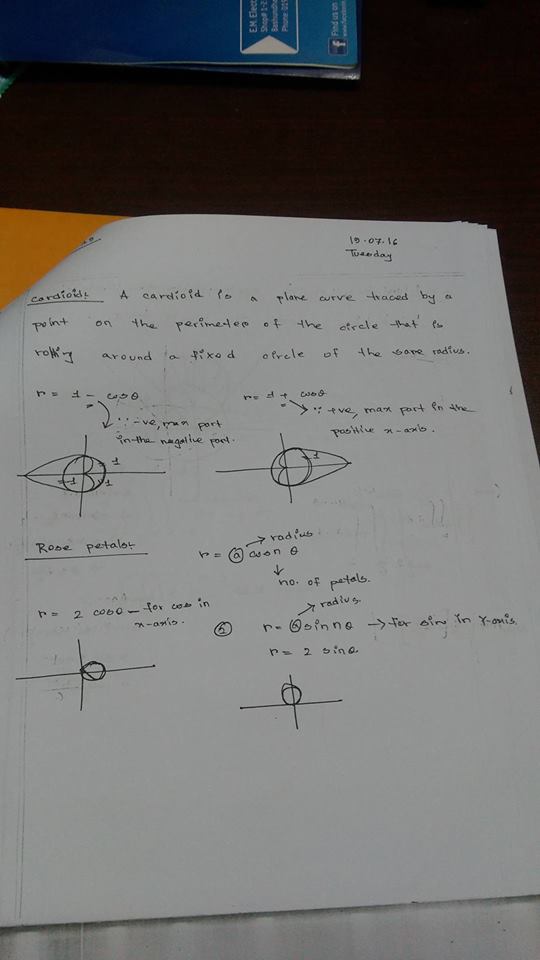 E.M. Elect
Shop# 1-2
Bashundha
Phone: 015
Find us on
19.07.16
Tuesday
Cardioid: A cardioid is a plane curve traced by a
point on the perimeter of the circle that is
rolling around a fixed circle of the same radius.
r = 1 - cosθ
∵ -ve, max part
in the negative part.
r = 1 + cosθ
∵ +ve, max part in the
positive x-axis.
1
-1
1
1
Rose petals:
r = a cosn θ
→ radius
↓
no. of petals.
r = 2 cosθ — for cos in
x-axis.
→ radius.
r = a sin nθ → for sin in Y-axis.
r = 2 sinθ